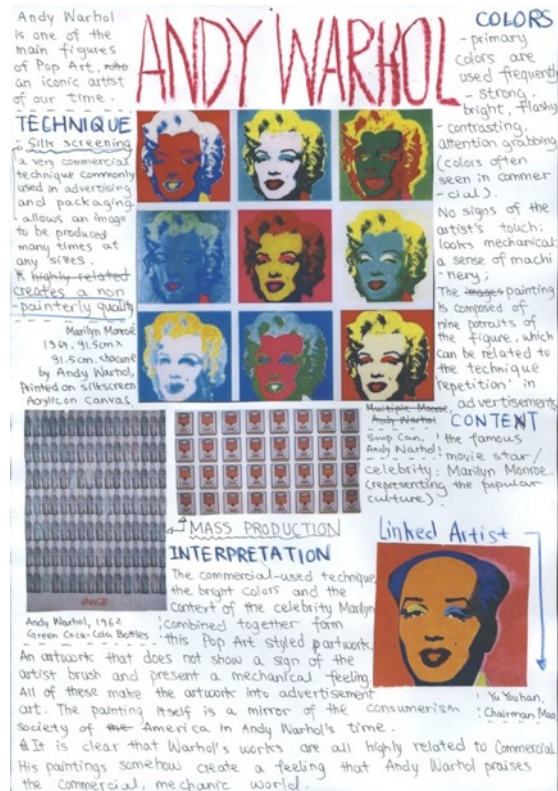 Andy Warhol
is one of the
main figures
of Pop Art, who
an iconic artist
of our time.
ANDY WARHOL
COLORS
- primary
colors are
used frequently
- strong,
bright, flashing
- contrasting,
attention grabbing
(colors often
seen in commer
-cial).
No signs of the
artist's touch:
looks mechanical
a sense of machi
-nery;
The images painting
is composed of
nine potraits of
the figure, which
can be related to
the technique
'repetition' in
advertisements
TECHNIQUE
Silk screening
a very commercial
technique commonly
used in advertising
and packaging
allows an image
to be produced
many times at
any sizes.
* highly related
creates a non
-painterly quality
Marilyn Monroe
91.5cm x
91.5cm.
by Andy Warhol,
Printed on silkscreen
Acrylic on canvas
Multiple Monroe,
Andy Warhol
Soup Can,
Andy Warhol
CONTENT
the famous
movie star/
celebrity: Marilyn Monroe.
(representing the popular
culture).
MASS PRODUCTION
Coca-Cola
Andy Warhol, 1962
Green Coca-Cola Bottles
INTERPRETATION
The commercial-used technique,
the bright colors and the
context of the celebrity Marilyn
combined together form
this Pop Art styled artwork.
An artwork that does not show a sign of the
artist brush and present a mechanical feeling.
All of these make the artwork into advertisement
art. The painting itself is a mirror of the consumerism
society of the America in Andy Warhol's time.
It is clear that Warhol's works are all highly related to Commercial.
His paintings somehow create a feeling that Andy Warhol praises
the commercial, mechanic world.
Linked Artist
Yu Youhan,
Chairman Mao